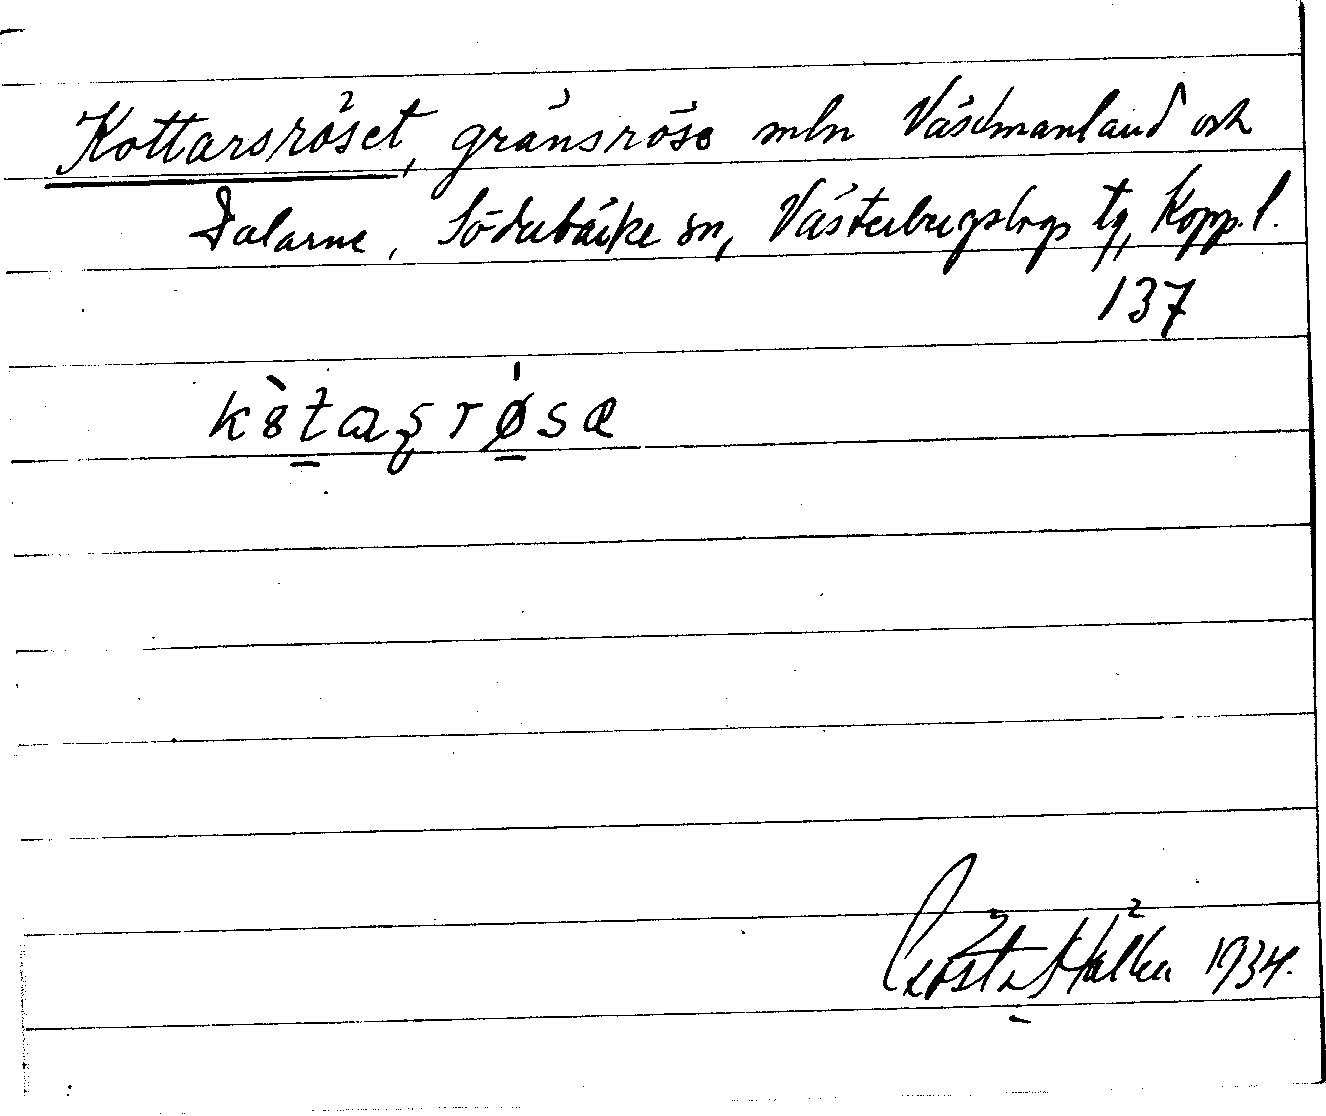 Kottarsröset, gränsröse mln Västmanland och
Dalarne, Söderbärke sn, Västerbergslags tg, Kopp. l.
137
kȣ̀taʂrø̍sæ
Gösta Hållen 1934.